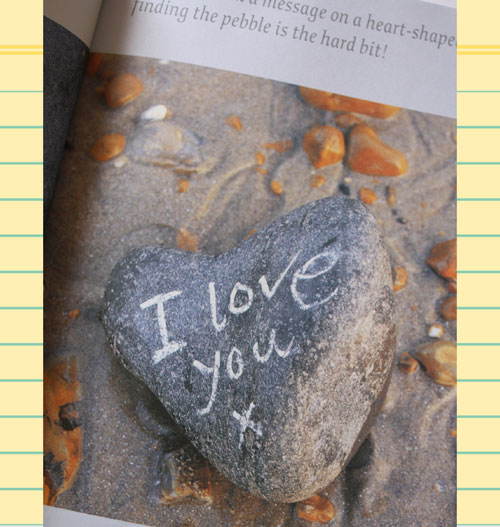 a message on a heart-shape
finding the pebble is the hard bit!
I love
you
x